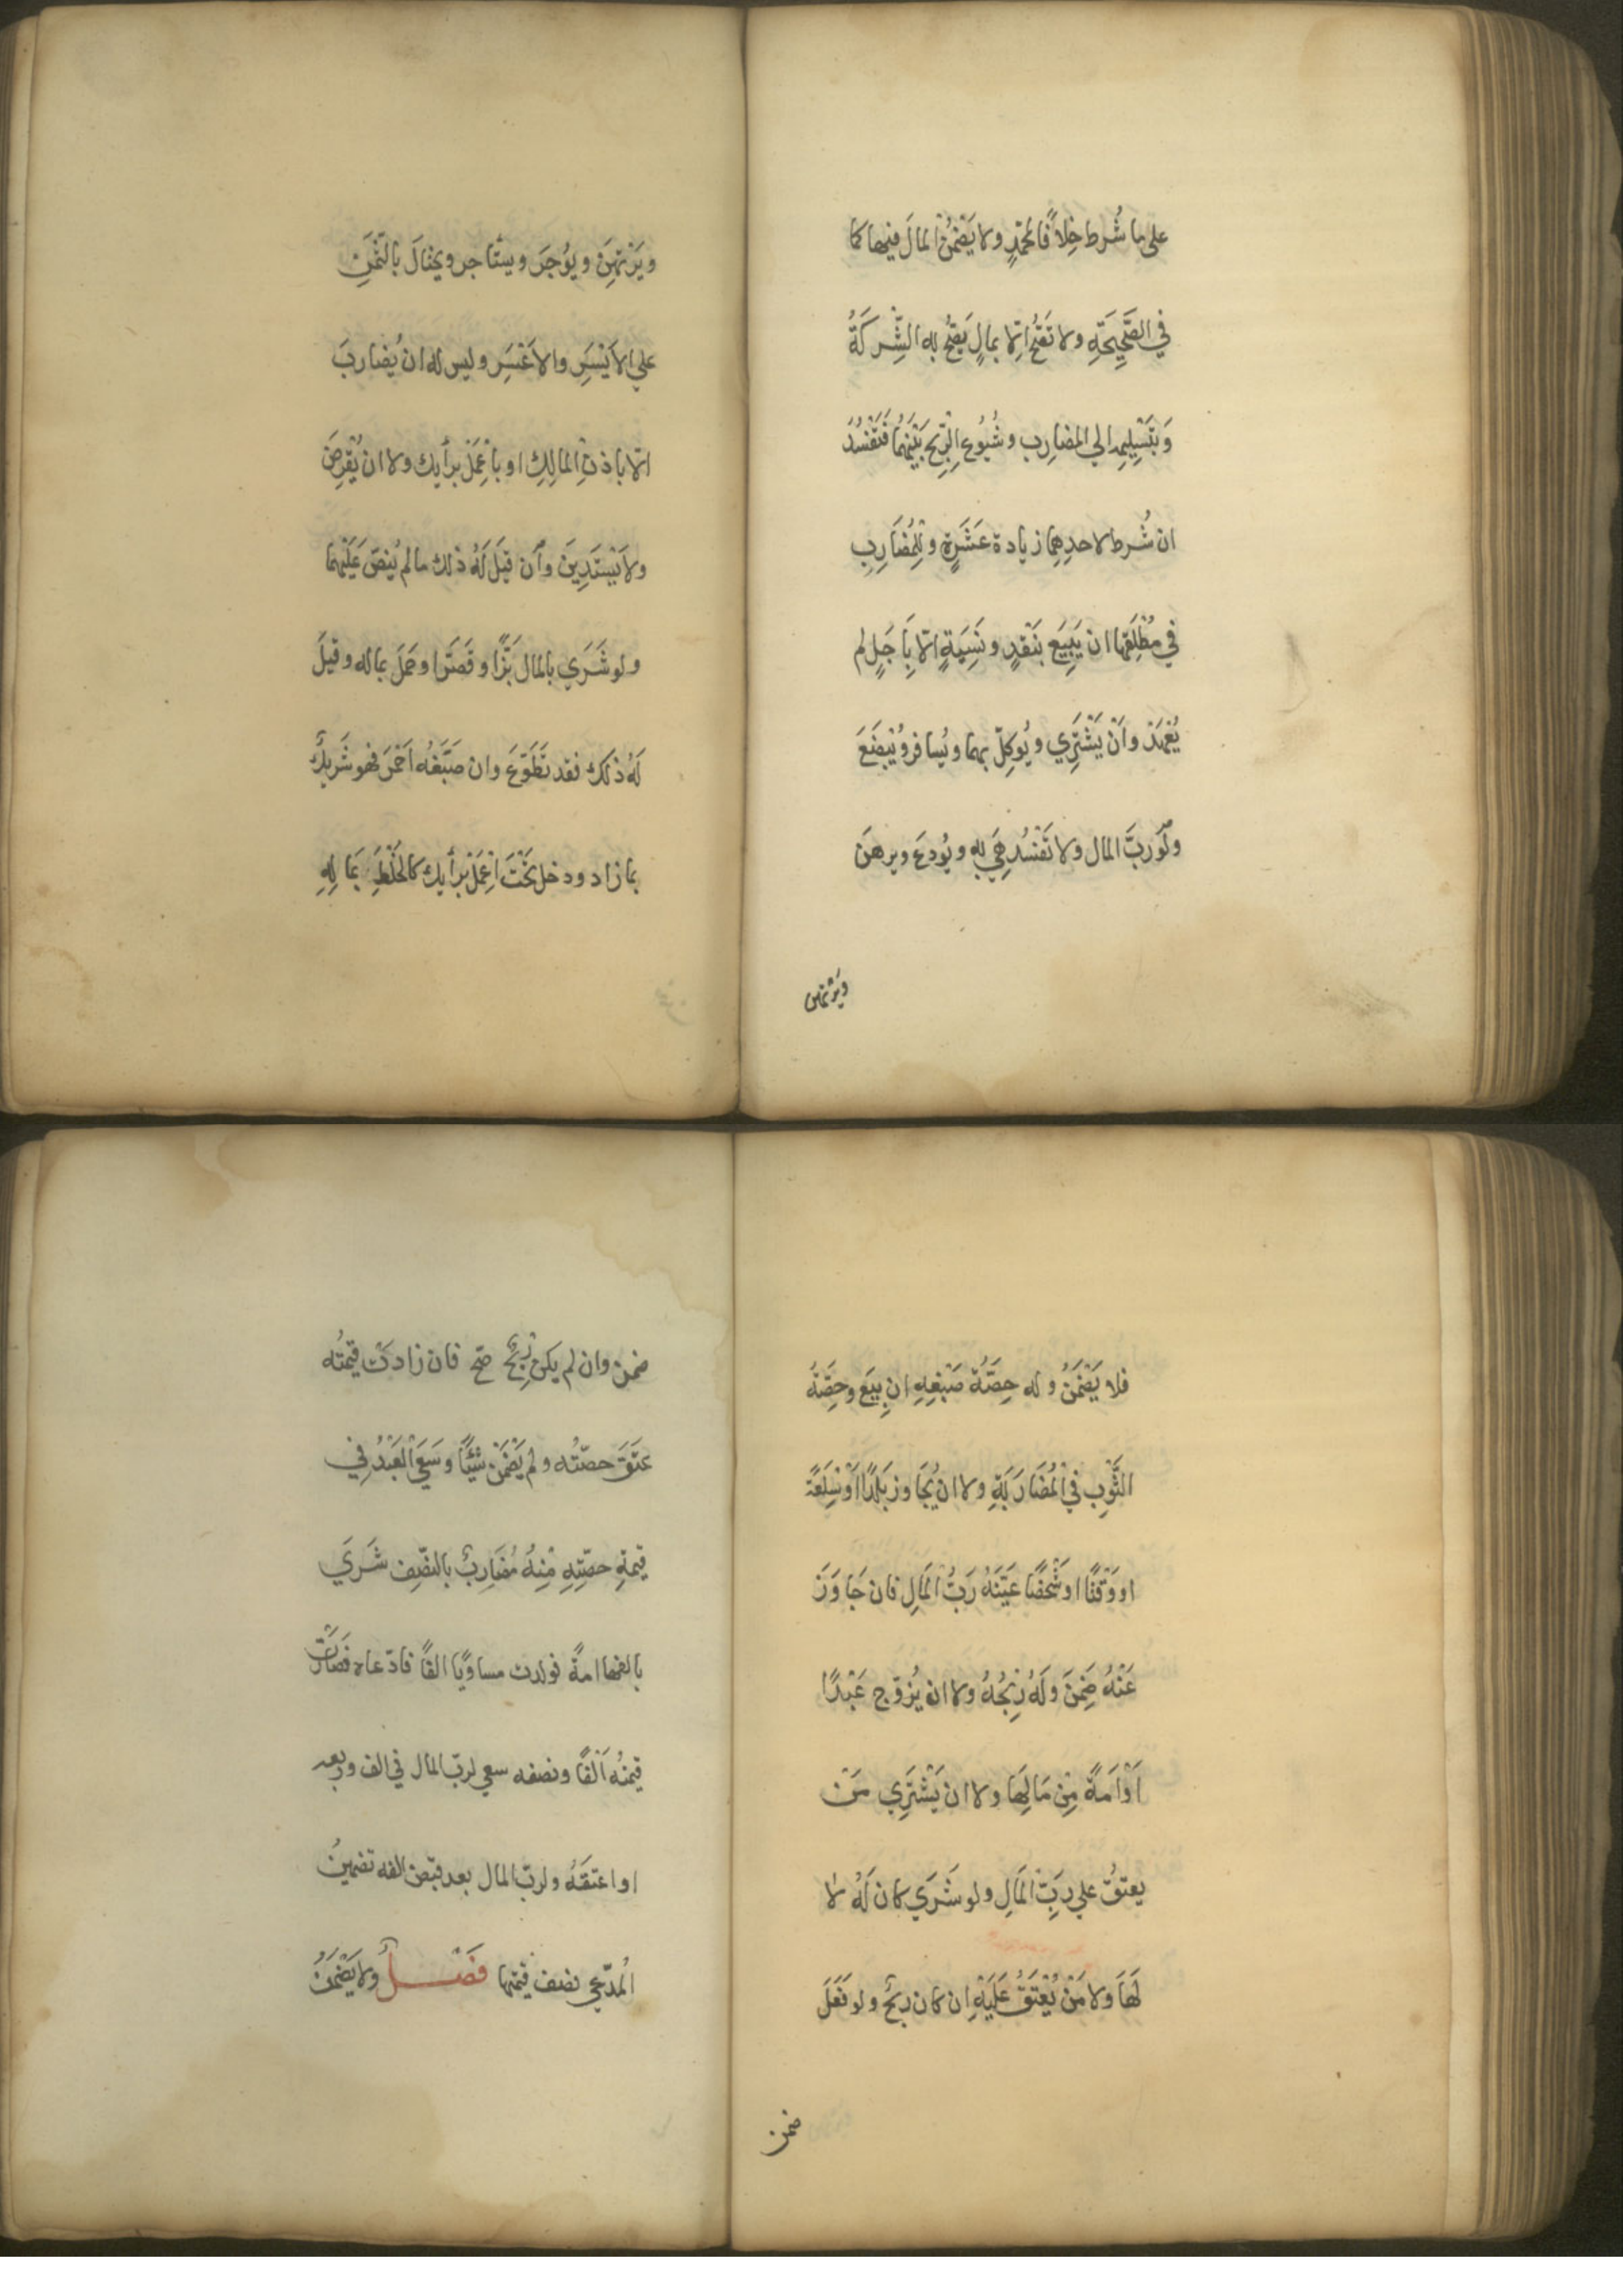 على ما شُرط خِلافًا لمحمّدٍ ولا يَضْمَنُ المالَ فيها كما
في الصَّحِيحَةِ ولا تَصِحُّ اِلّا بمالٍ يَصِحُّ به الشِّركَةُ
وَبتَسْلِيمِه الي المضارِب وشُيُوعِ الرِّبْحِ بَيْنَهُمَا فَتَفْسُدُ
ان شُرط لاحدِهِمَا زيادة عَشَرَةٍ وللِمُضَارِبِ
في مُطْلَقِهَا ان يَبِيعَ بنَقْدٍ ونَسِيَةٍ اِلّا بِاَجَلٍ لم
يُعْهَدْ واَنْ يَشْتَرِي ويُوكِلّ بهما ويُسافر ويُبْضِعَ
ولَو ربَّ المال ولا تَفْسُد هِيَ به ويُودعَ ويرهنَ
ويَرْتهن
ويَرْتهِنَ ويُوجَرَ ويستَاجر ويحتالَ بالثَّمَنِ
علي الاَيْسَرِ والاَعْسَرِ وليس له ان يُضاربَ
اِلّا باذنِ المالِكِ او باِعْمَلْ برأيك ولا ان يُقْرِضَ
ولاَ يَسْتَدِينَ واِن قيلَ لَهُ ذلك ما لم يُنصّ عَلَيْهما
ولو شَرَي بالمال بَزًّا وقَصَّرا وحَمَلَ بماله وقيلَ
لَهُ ذلك فقد تَطَوَّعَ وان صَبَغَه اَحْمَرَ فهو شَريكٌ
بما زاد ودخل تَحْتَ اِعْمَلْ برأيك كالخَلْطِ بمَالِهِ
فلا يَضْمَنُ وله حِصَّةُ صَبْغِهِ انِ بِيعَ وحِصَّةُ
الثَّوْبِ في المُضَارَبَةِ ولا ان يُجَاوزَ بَلَدًا اَوْ سِلْعَةً
او وَقْتًا او شَخْصًا عَيَّنَهُ رَبُّ المَالِ فان جَاوَزَ
عَنْهُ ضَمِنَ وَلَهُ رِبْحُهُ ولا ان يُزوّج عَبْدًا
اَوْ اَمَةً مِنْ مَالِهَا ولا ان يَشْتَرِي مَنْ
يعتقُ علي رَبِّ المَالِ ولو شَرَي كان لَهُ لا
لَهَا ولا مَنْ يُعْتَقُ عَلَيْهِ اِن كان ربحٌ ولو فَعَلَ
ضمن
ضمن وان لم يكن رِبْحٌ صَحّ فان زادتْ قيمتُه
عتَقَ حصّتُه ولم يَضْمَنْ شَيْئًا وسَعَي العَبْدُ فِي
قيمةِ حصّتِهِ مِنْهُ مُضَارِبٌ بالنصّفِ شَرَي
بالفها امةً فولدت مساويًا الفًا فادّعاه فصَارَتْ
قيمتُه اَلْفًا ونصفه سعي لربّ المال في الف وربعه
او اعتقَهُ ولربّ المال بعد قبض الفه تضمينُ
المُدّعِي نصف قيمتها فَصْلٌ ولا يَضْمَنُ